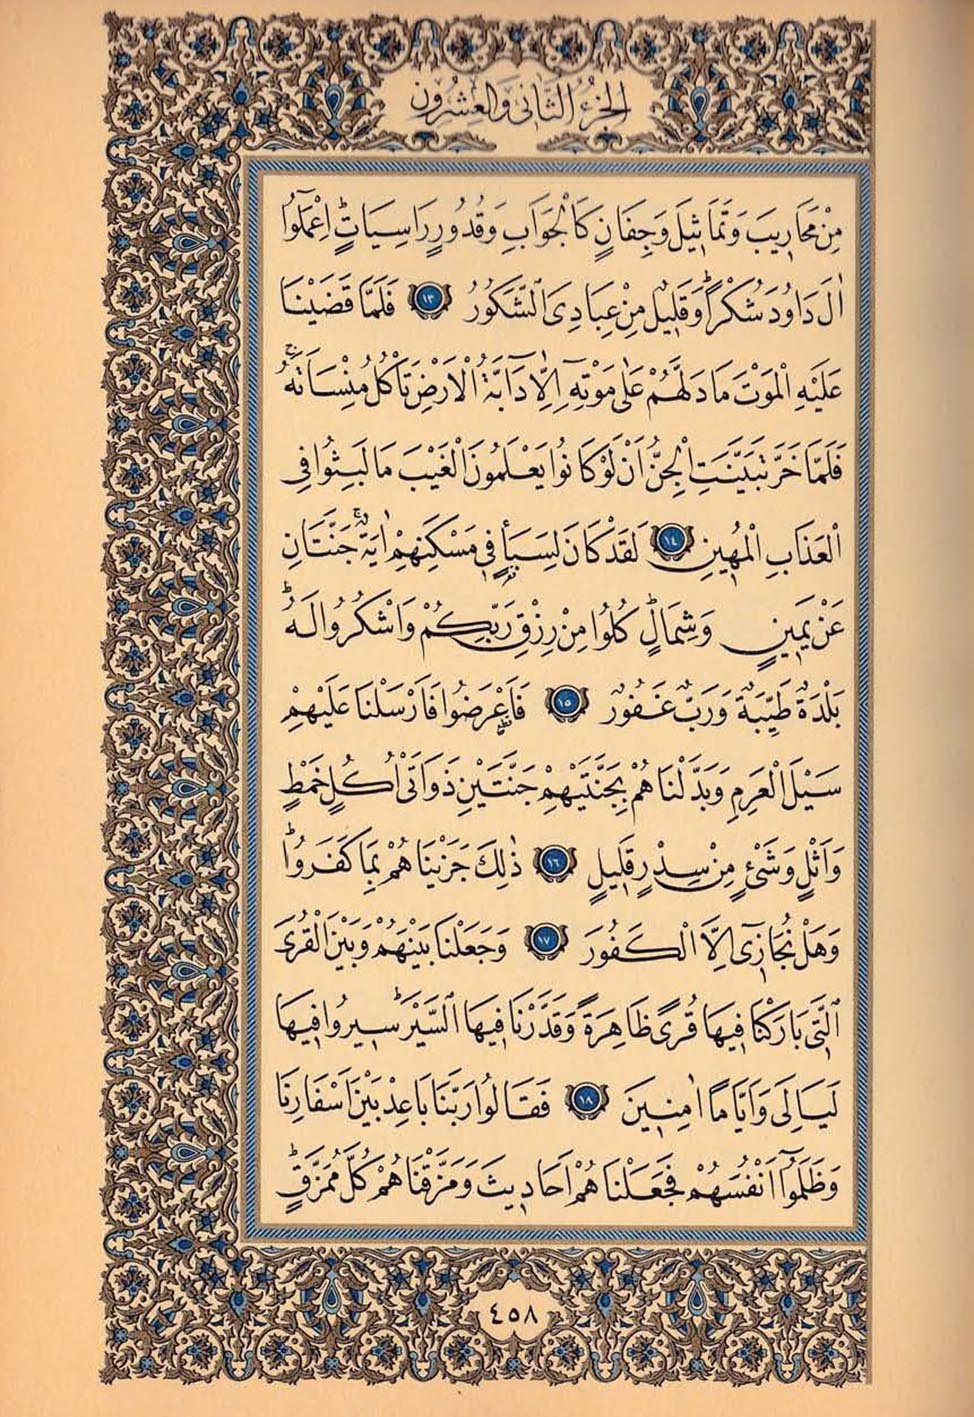 الجزء الثانى والعشرون
مِنْ مَحَارِيبَ وَتَمَاثِيلَ وَجِفَانٍ كَالْجَوَابِ وَقُدُورٍ رَاسِيَاتٍۜ اِعْمَلُٓوا
اٰلَ دَاوُدَ شُكْرًاۜ وَقَلِيلٌ مِنْ عِبَادِىَ الشَّكُورُ ﴿١٣﴾ فَلَمَّا قَضَيْنَا
عَلَيْهِ الْمَوْتَ مَا دَلَّهُمْ عَلٰى مَوْتِهِٓ اِلَّا دَٓابَّةُ الْاَرْضِ تَأْكُلُ مِنْسَاَتَهُۚ
فَلَمَّا خَرَّ تَبَيَّنَتِ الْجِنُّ اَنْ لَوْ كَانُوا يَعْلَمُونَ الْغَيْبَ مَا لَبِثُوا فِى
الْعَذَابِ الْمُهِينِ ﴿١٤﴾ لَقَدْ كَانَ لِسَبَأٍ فِى مَسْكَنِهِمْ اٰيَةٌۚ جَنَّتَانِ
عَنْ يَمِينٍ وَشِمَالٍۜ كُلُوا مِنْ رِزْقِ رَبِّكُمْ وَاشْكُرُوا لَهُۜ
بَلْدَةٌ طَيِّبَةٌ وَرَبٌّ غَفُورٌ ﴿١٥﴾ فَاَعْرَضُوا فَاَرْسَلْنَا عَلَيْهِمْ
سَيْلَ الْعَرِمِ وَبَدَّلْنَاهُمْ بِجَنَّتَيْهِمْ جَنَّتَيْنِ ذَوَاتَىْ اُكُلٍ خَمْطٍ
وَاَثْلٍ وَشَىْءٍ مِنْ سِدْرٍ قَلِيلٍ ﴿١٦﴾ ذٰلِكَ جَزَيْنَاهُمْ بِمَا كَفَرُواۜ
وَهَلْ نُجَازِٓى اِلَّا الْكَفُورَ ﴿١٧﴾ وَجَعَلْنَا بَيْنَهُمْ وَبَيْنَ الْقُرَى
الَّتِى بَارَكْنَا فِيهَا قُرًى ظَاهِرَةً وَقَدَّرْنَا فِيهَا السَّيْرَۜ سِيرُوا فِيهَا
لَيَالِىَ وَاَيَّامًا اٰمِنِينَ ﴿١٨﴾ فَقَالُوا رَبَّنَا بَاعِدْ بَيْنَ اَسْفَارِنَا
وَظَلَمُٓوا اَنْفُسَهُمْ فَجَعَلْنَاهُمْ اَحَادِيثَ وَمَزَّقْنَاهُمْ كُلَّ مُمَزَّقٍۜ
٤٥٨